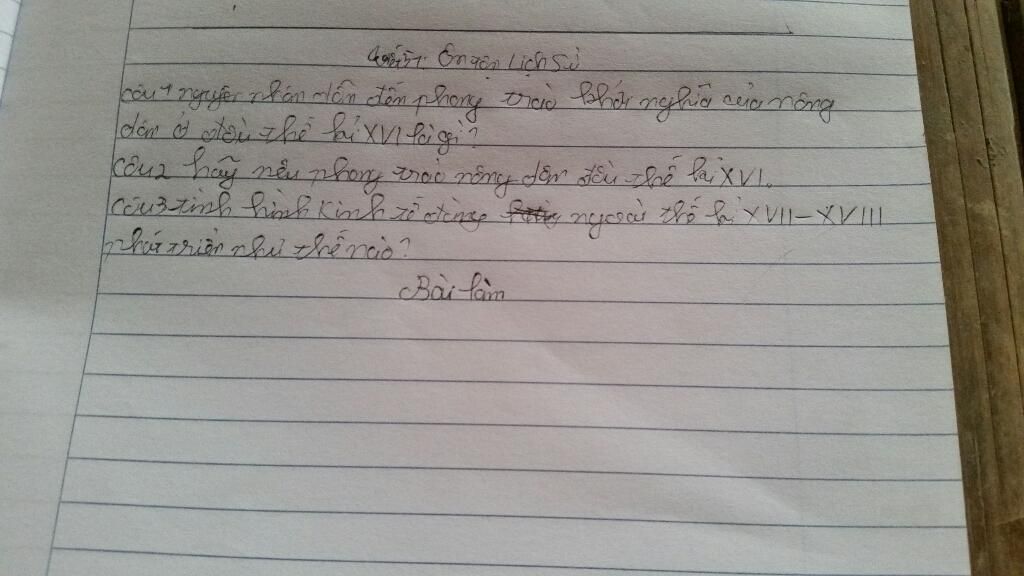 Ôn tập Lịch Sử
câu 1 nguyên nhân dẫn đến phong trào khởi nghĩa của nông
dân ở đầu thế kỉ XVI là gì?
câu 2 hãy nêu phong trào nông dân đầu thế kỉ XVI.
câu 3 tình hình kinh tế đàng ngoài thế kỉ XVII-XVIII
phát triển như thế nào?
Bài làm